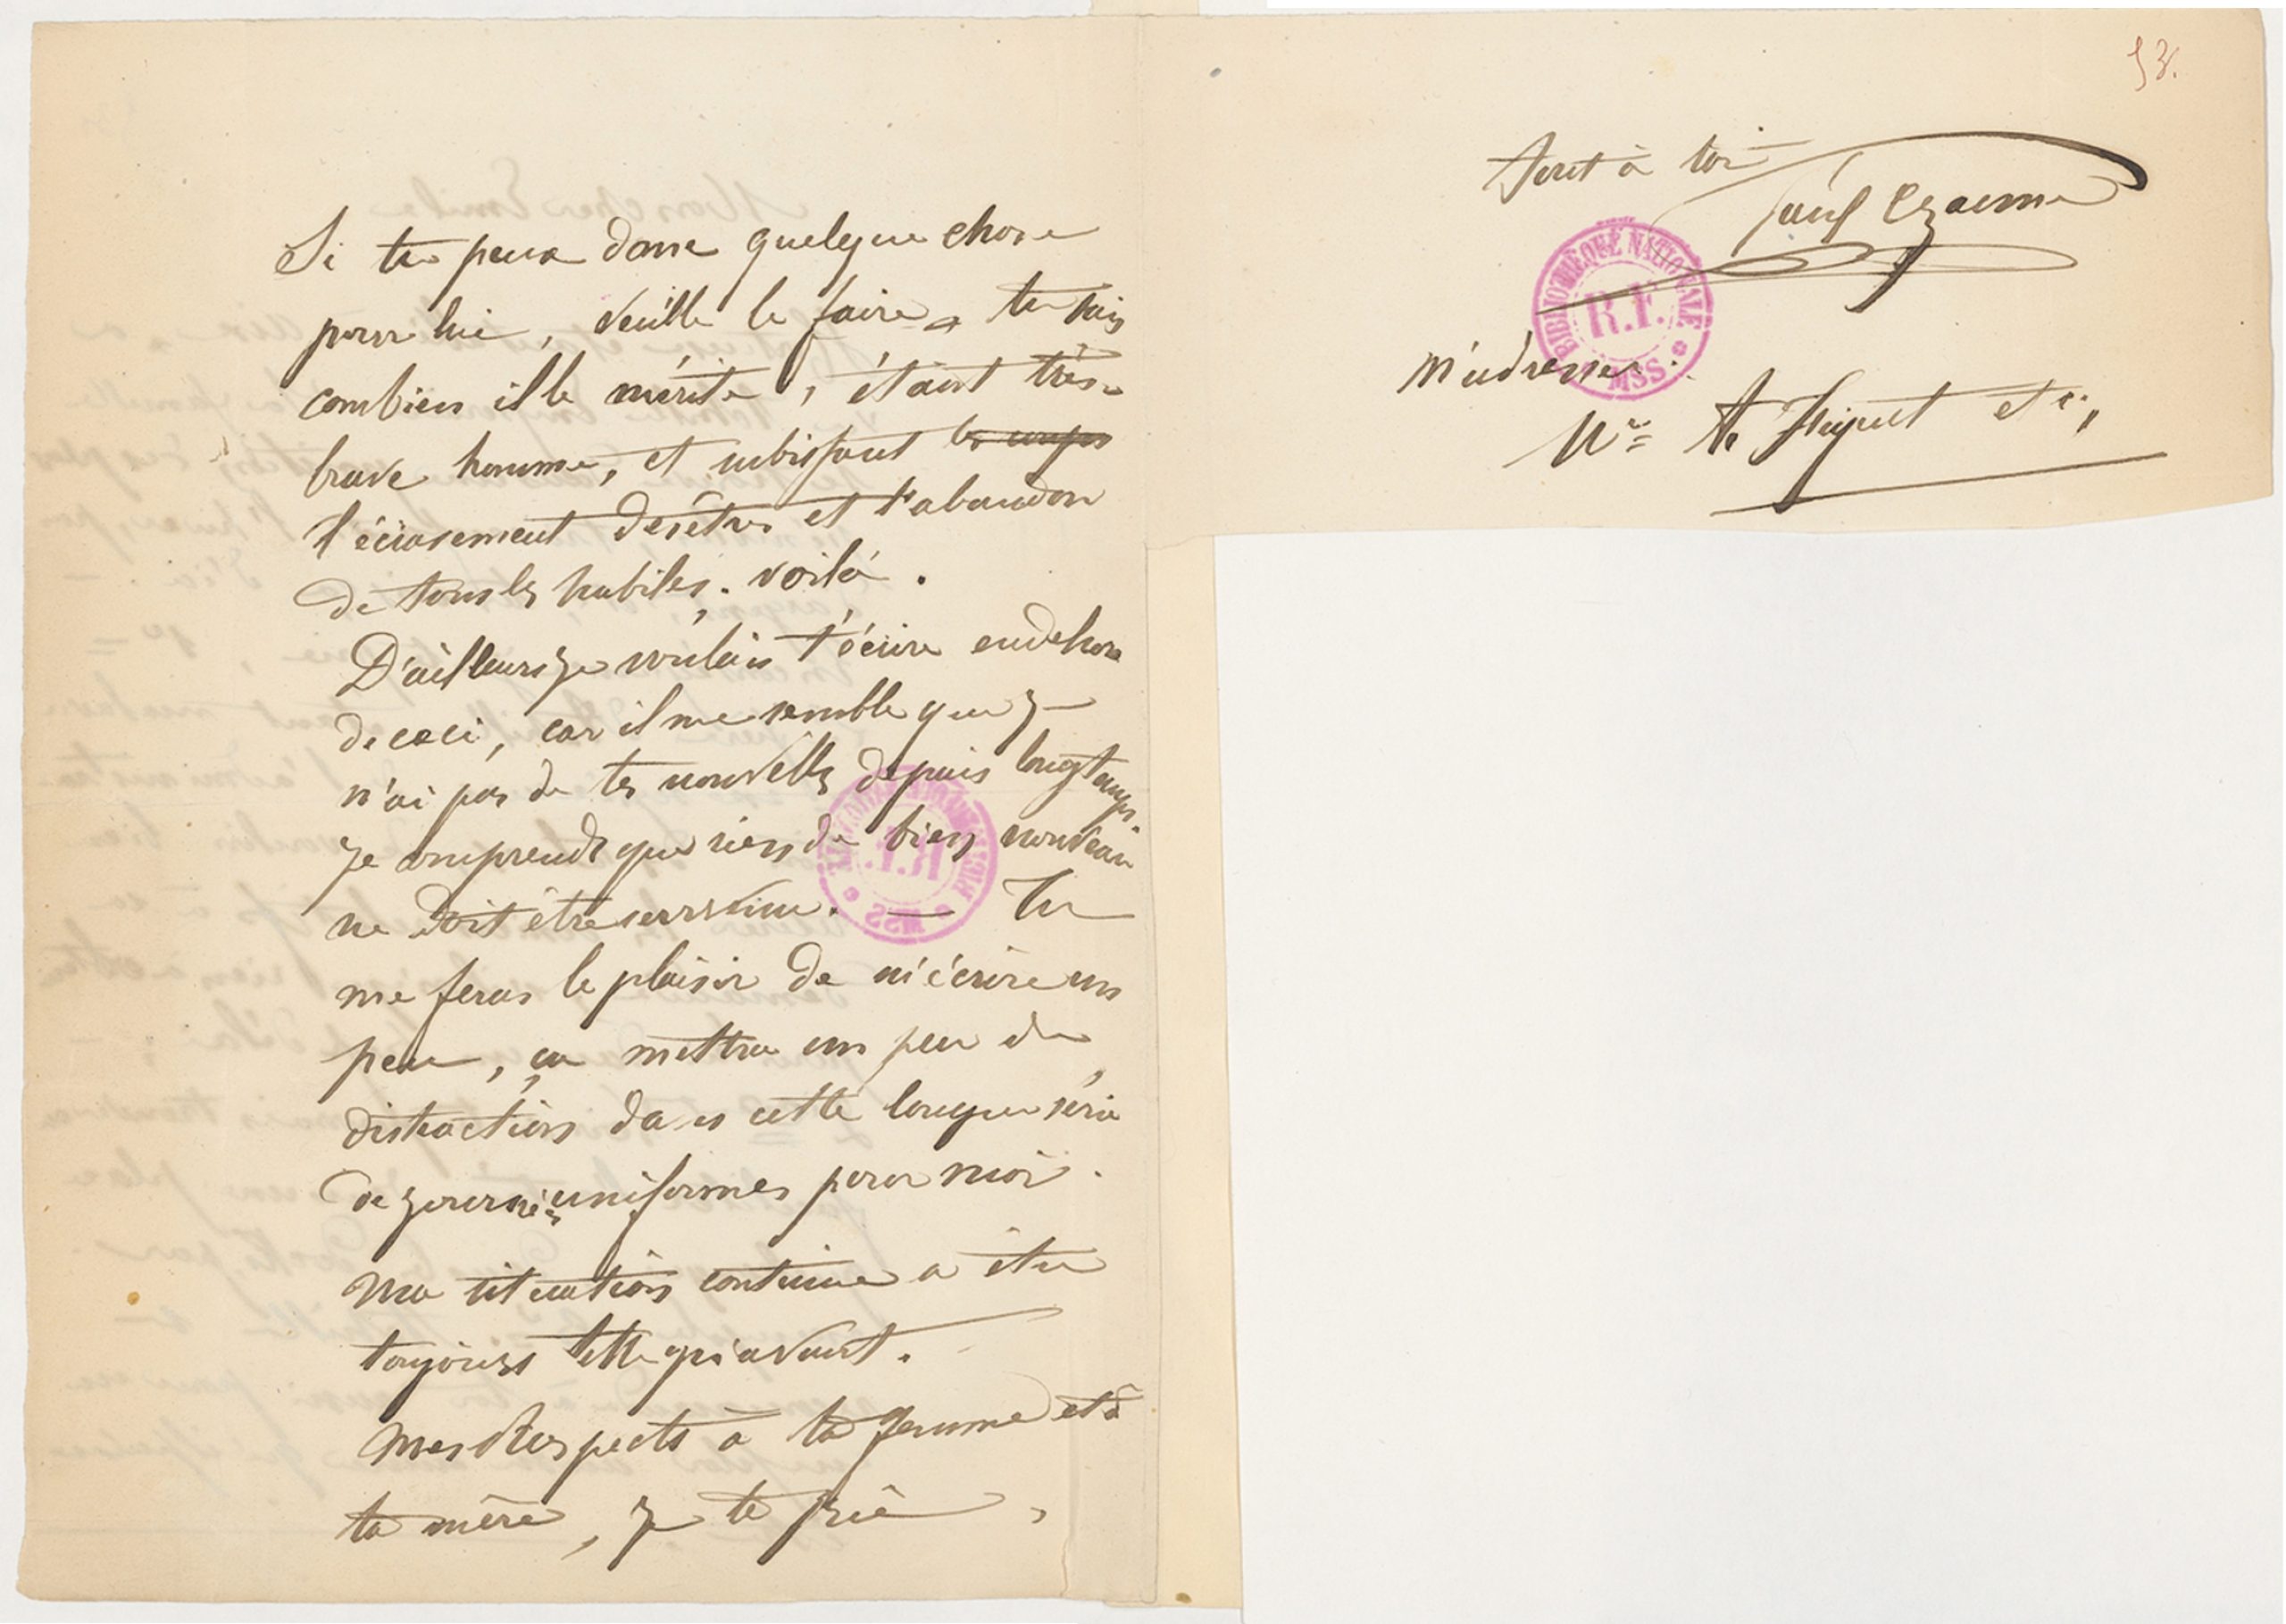 Si tu peux donc quelque chose
pour lui, veuille le faire, tu sais
combien il le mérite, étant très-
brave homme, et subissant les coups
l'écrasement des êtres et l'abandon
de tous les habiles. voilà.
D'ailleurs je voulais t'écrire en dehors
de ceci, car il me semble que je
n'ai pas de tes nouvelles depuis longtemps.
Je comprends que rien de bien nouveau
ne doit être survenu. — Tu
me feras le plaisir de m'écrire un
peu, ça mettra un peu de
distraction dans cette longue série
de journées uniformes pour moi.
Ma situation continue a être
toujours telle qu'avant.
Mes Respects à ta femme et à
ta mère, je te prie,
53.
Tout à toi
Paul Cezanne
BIBLIOTHÈQUE NATIONALE
R.F.
MSS
M'adresser: